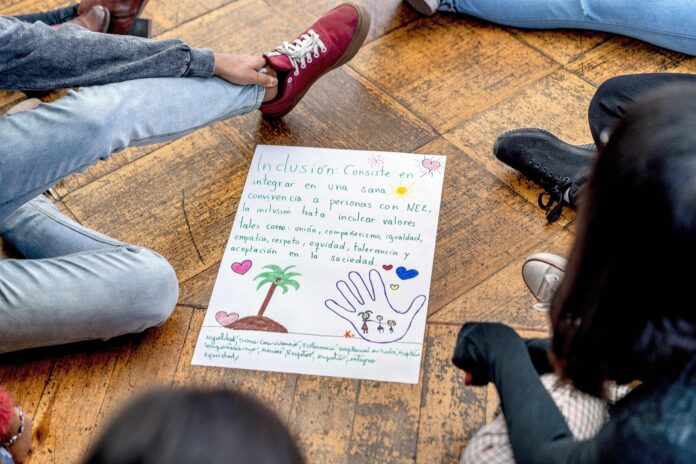 Inclusión: Consiste en
integrar en una sana
convivencia a personas con NEE,
la inclusión trata inculcar valores
tales como: unión, compañerismo, igualdad,
empatía, respeto, equidad, tolerancia y
aceptación en la sociedad.
igualdad, sana convivencia, tolerancia, aceptación
compañerismo, unión, Respeto, empatía, integrar
equidad